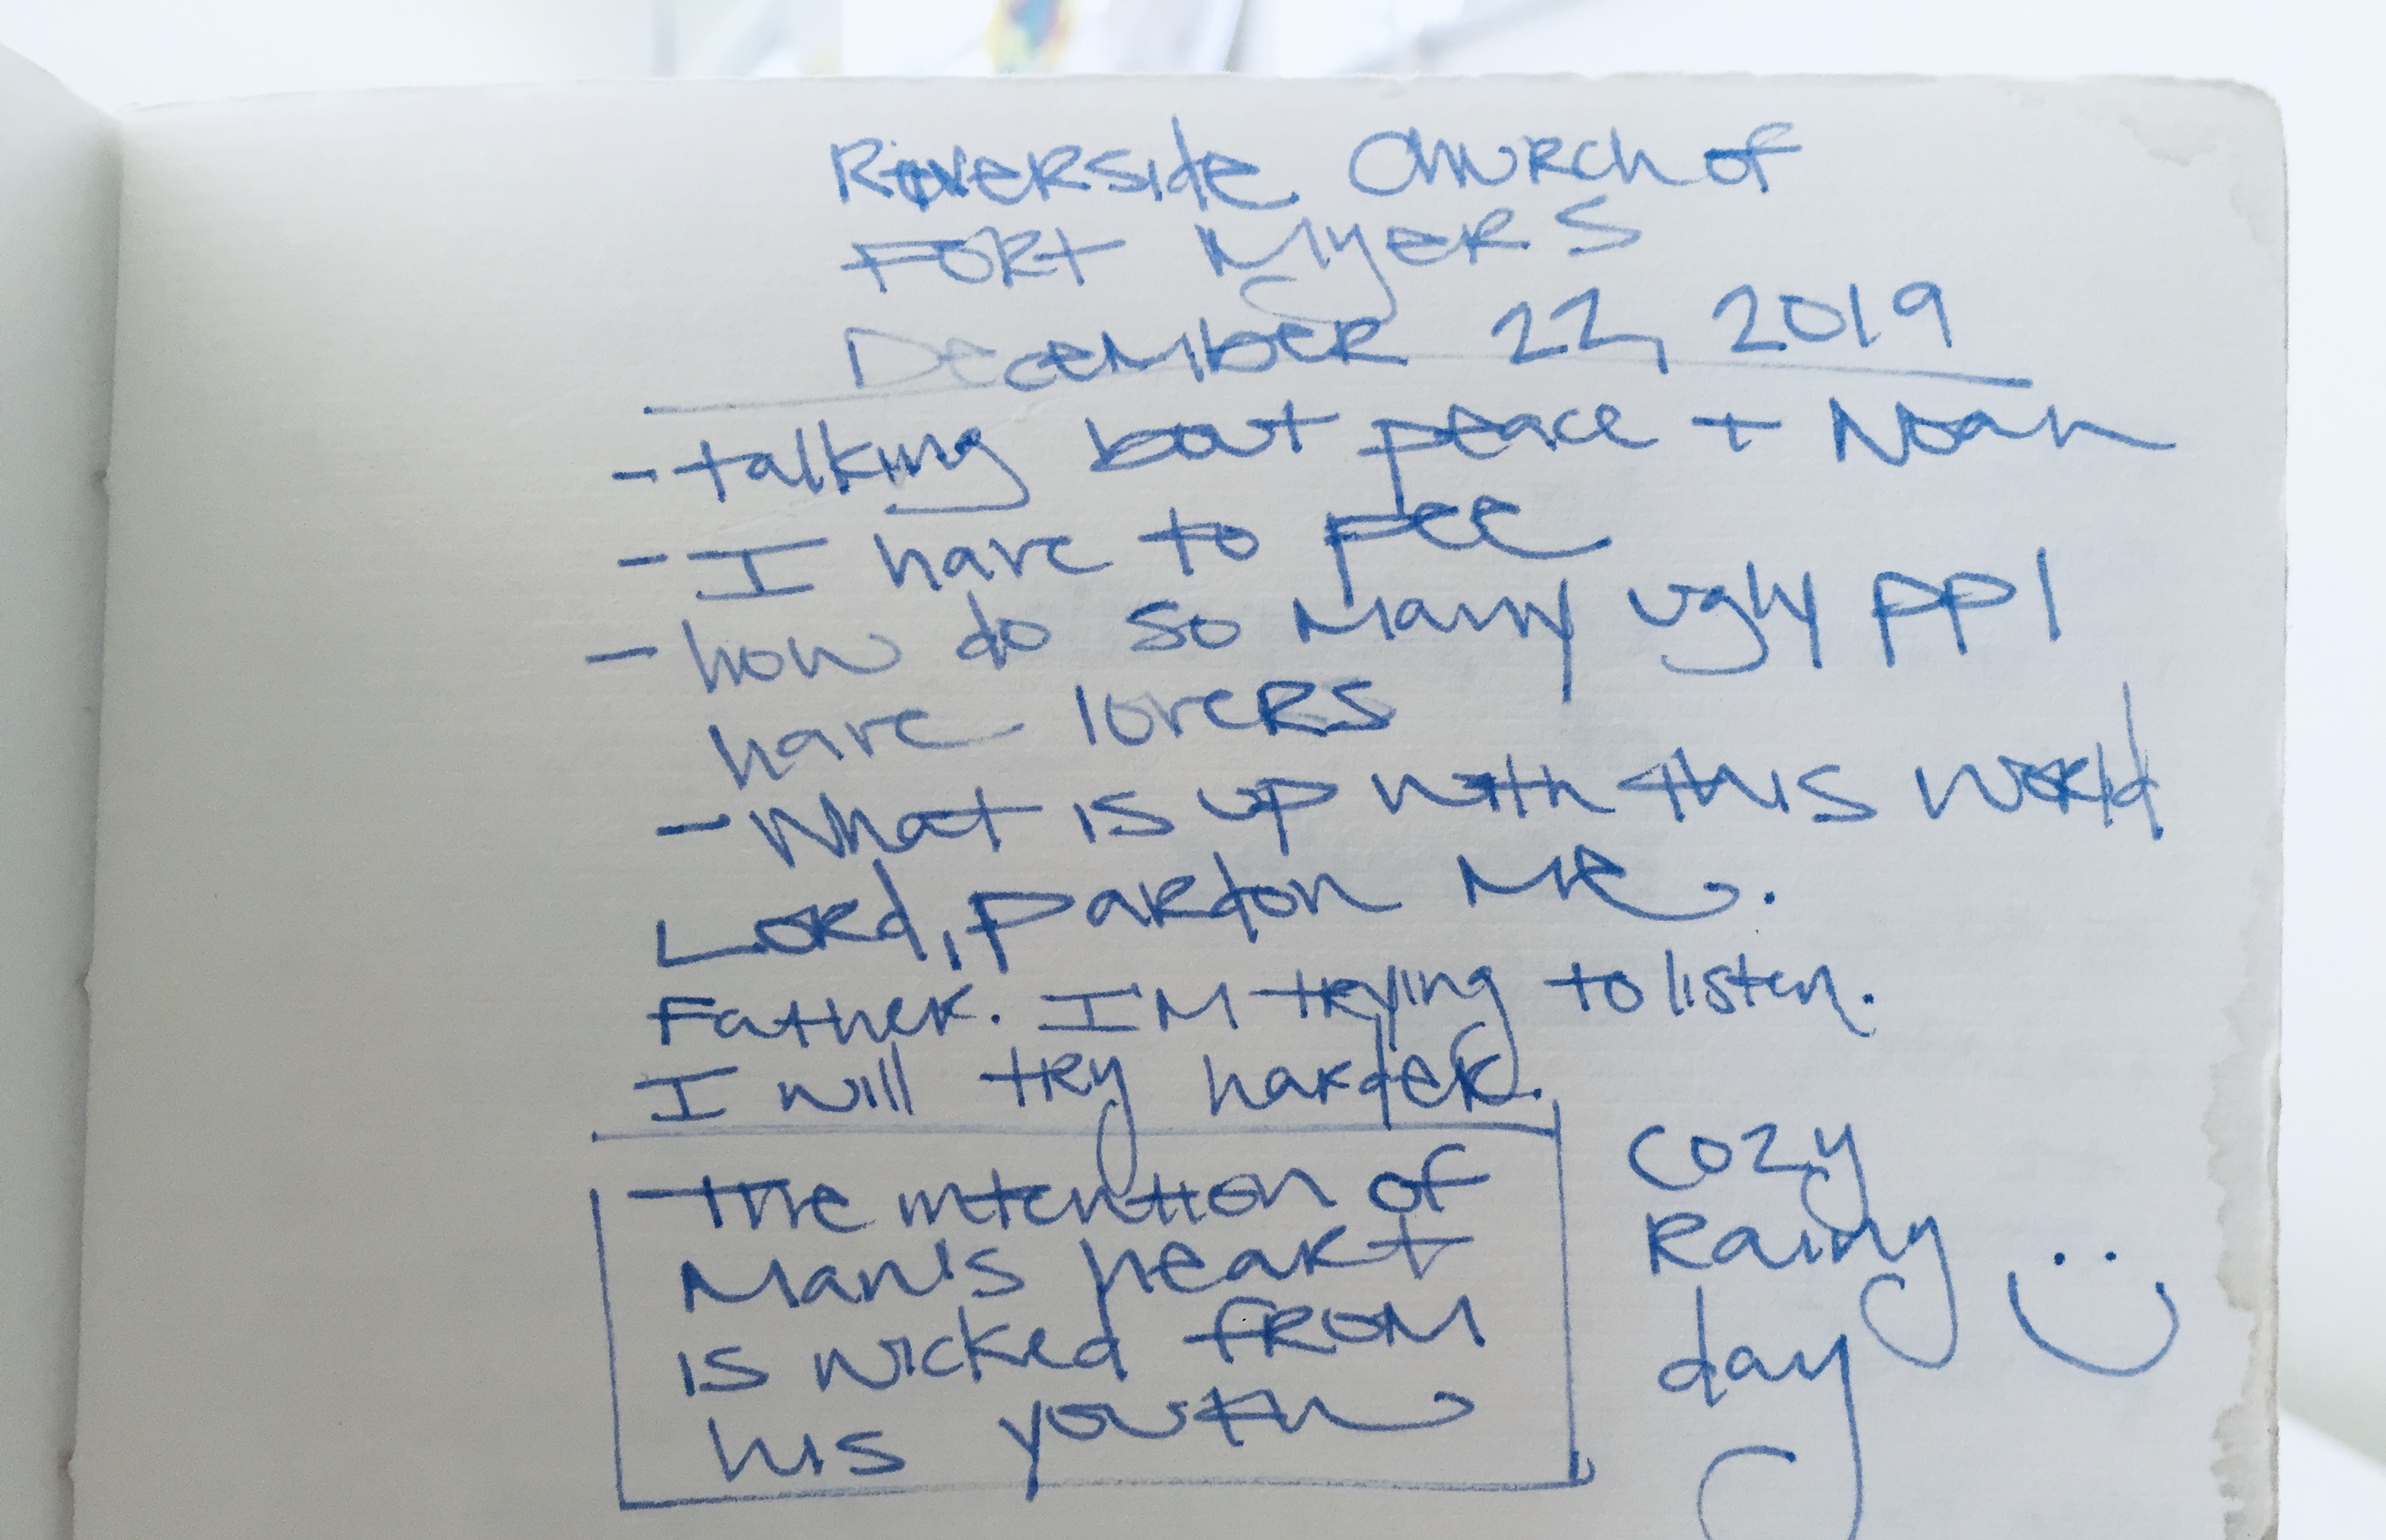 Riverside Church of
Fort Myers
December 22, 2019
- talking bout peace + Noah
- I have to pee
- how do so many ugly ppl
have lovers
- What is up with this world
Lord, pardon me.
Father. I'm trying to listen.
I will try harder.
- The intention of
Man's heart
is wicked from
his youth
cozy
Rainy
day